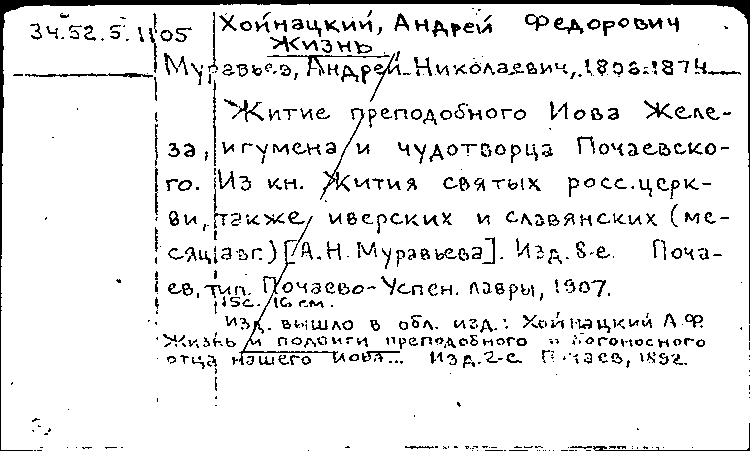 34.52.5.1105
Хойнацкий, Андрей Федорович
Жизнь
Муравьев, Андрей Николаевич, 1806-1874
Житие преподобного Иова Желе-
за, игумена и чудотворца Почаевско-
го. Из кн. Жития святых росс.церк-
ви, также иверских и славянских (ме-
сяц авг.) [А.Н. Муравьева]. Изд. 8-е. Поча-
ев, тип. Почаево-Успен. лавры, 1907.
15с. 16 см.
Изд. вышло в обл. изд.: Хойнацкий А.Ф.
Жизнь и подвиги преподобного и богоносного
отца нашего Иова... Изд.2-е. Почаев, 1892.